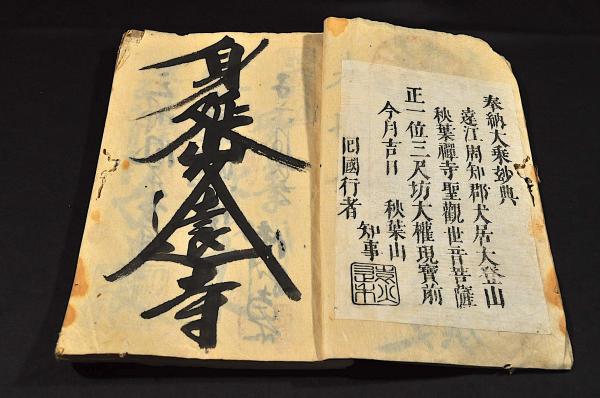 奉納大乗妙典
遠江周知郡犬居大登山
秋葉禪寺聖觀世音菩薩
正一位三尺坊大權現寶前
今月吉日 秋葉山
知事
回國行者
身延山久遠寺